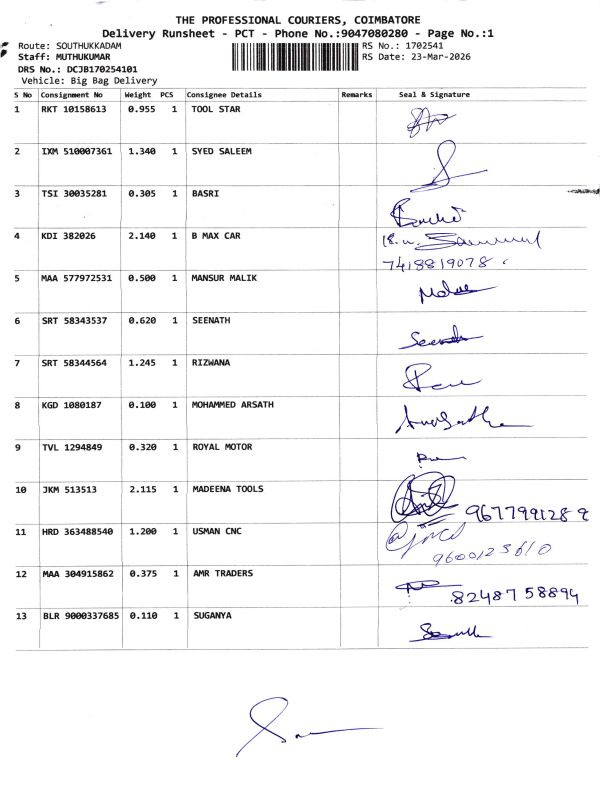 THE PROFESSIONAL COURIERS, COIMBATORE
Delivery Runsheet - PCT - Phone No.:9047080280 - Page No.:1
Route: SOUTHUKKADAM RS No.: 1702541
Staff: MUTHUKUMAR RS Date: 23-Mar-2026
DRS No.: DCJB170254101
Vehicle: Big Bag Delivery
S No Consignment No Weight PCS Consignee Details Remarks Seal & Signature
1 RKT 10158613 0.955 1 TOOL STAR
2 IXM 510007361 1.340 1 SYED SALEEM
3 TSI 30035281 0.305 1 BASRI
4 KDI 382026 2.140 1 B MAX CAR
7418819078
5 MAA 577972531 0.500 1 MANSUR MALIK
6 SRT 58343537 0.620 1 SEENATH
7 SRT 58344564 1.245 1 RIZWANA
8 KGD 1080187 0.100 1 MOHAMMED ARSATH
9 TVL 1294849 0.320 1 ROYAL MOTOR
10 JKM 513513 2.115 1 MADEENA TOOLS 9677991289
11 HRD 363488540 1.200 1 USMAN CNC
9600123610
12 MAA 304915862 0.375 1 AMR TRADERS
8248758894
13 BLR 9000337685 0.110 1 SUGANYA